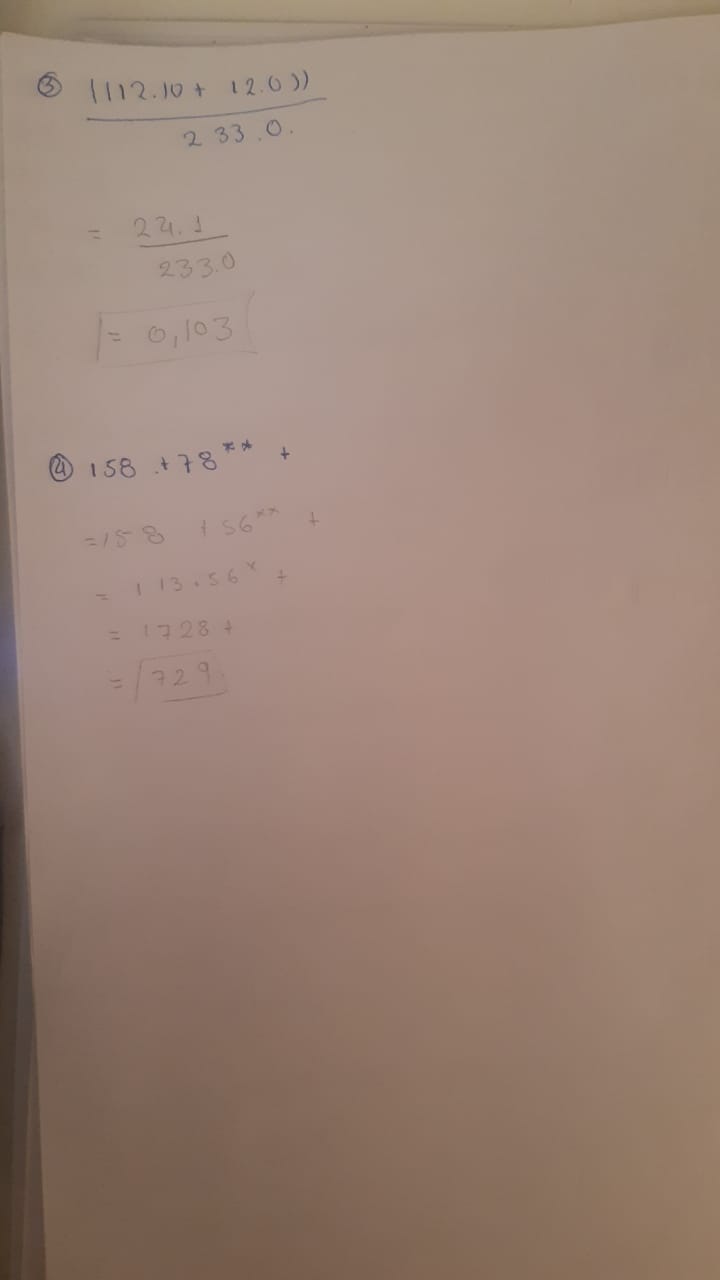 ③ ((12.10 + 12.0))
233.0.
= 24.1
233.0
= 0,103
④ 158 + 78** +
= 158 + 56** +
= 1 13 . 56* +
= 1728 +
= 729